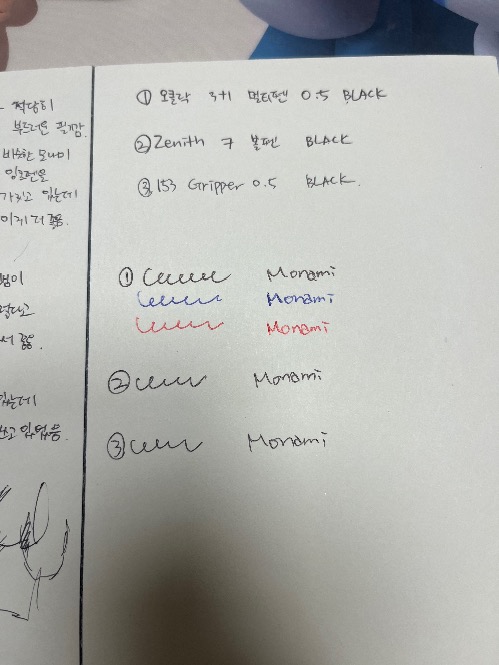 적당히
부드러운 필감.
비슷한 모나미
가지고 있는데
이게 더 좋음.
펜이
렵다고
서 좋음.
있는데
쓰고 있었음.
① 오클락 3+1 멀티펜 0.5 BLACK
② Zenith 7 볼펜 BLACK
③ 153 Gripper 0.5 BLACK.
① Monami
Monami
Monami
② Monami
③ Monami